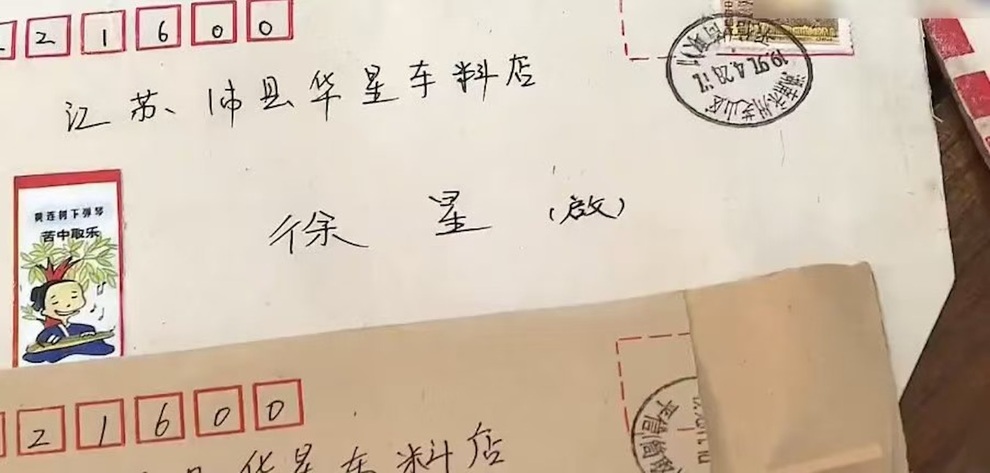 21600
江苏、沛县华星车料店
徐星（啟）
黄连树下弹琴
苦中取乐
21600
华星车料店